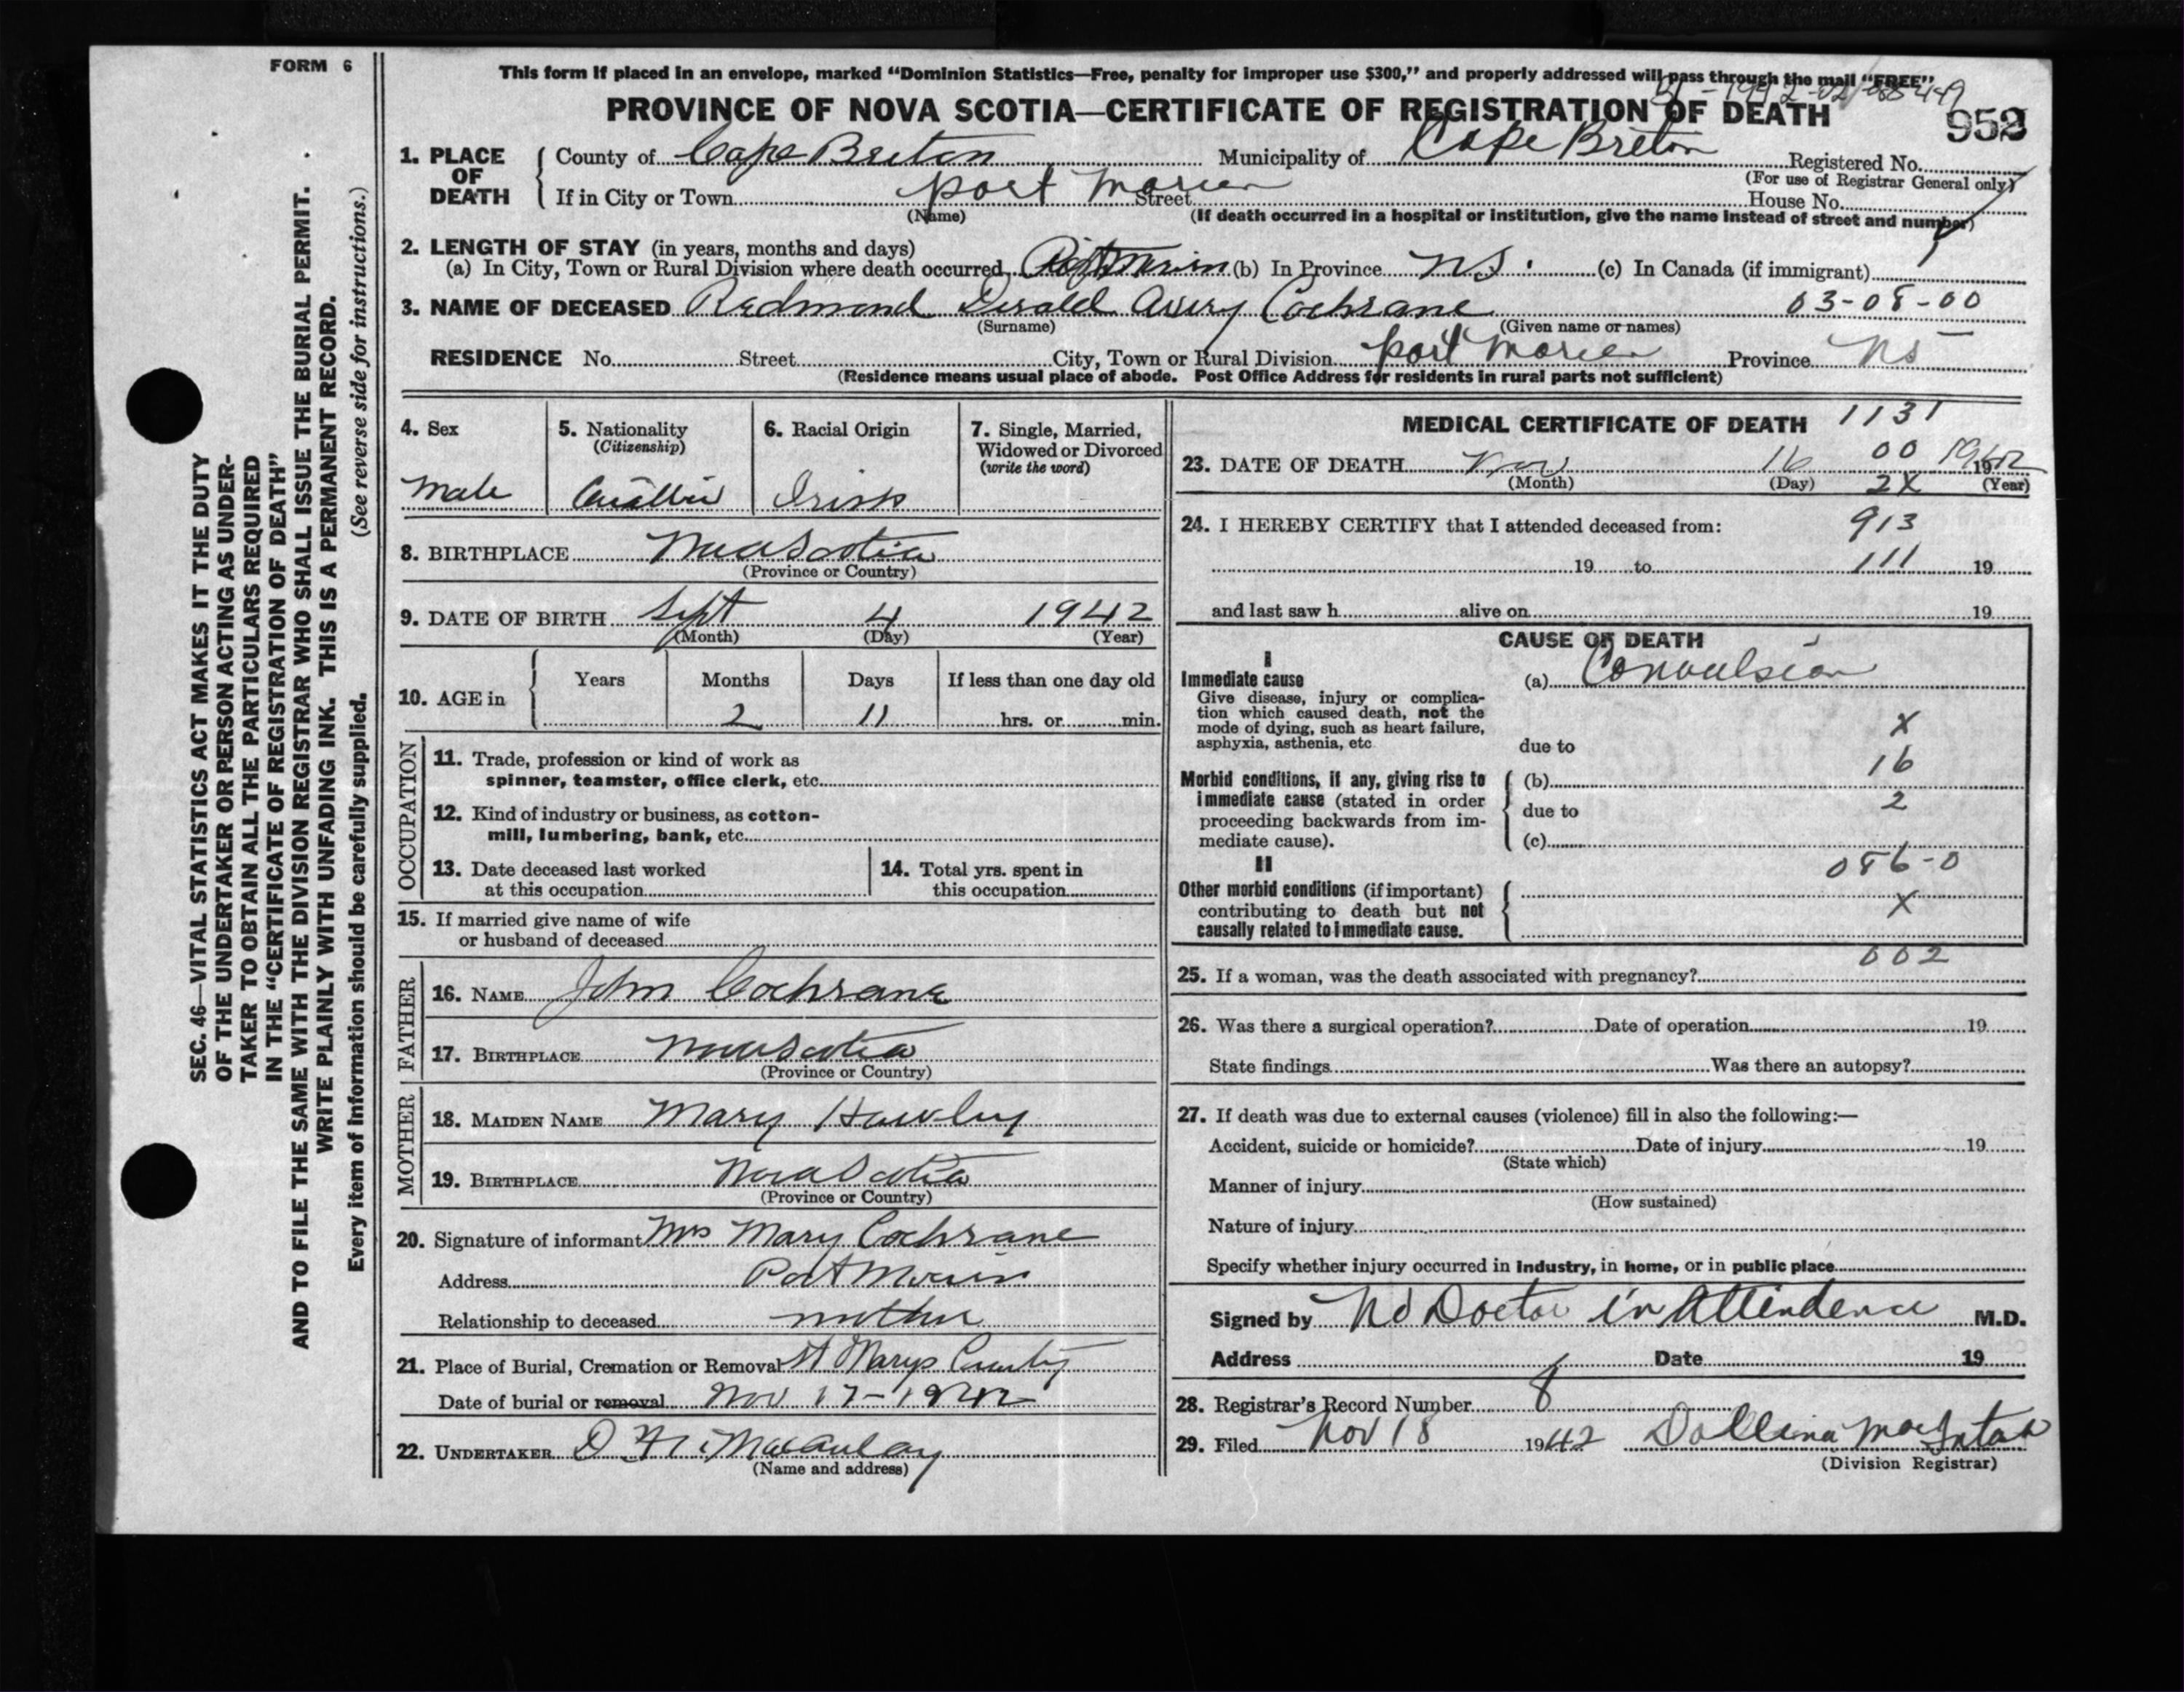 FORM 6
This form if placed in an envelope, marked “Dominion Statistics—Free, penalty for improper use $300,” and properly addressed will pass through the mail “FREE”
PROVINCE OF NOVA SCOTIA—CERTIFICATE OF REGISTRATION OF DEATH
952
1. PLACE OF DEATH
County of Cape Breton Municipality of Cape Breton Registered No.
(For use of Registrar General only)
If in City or Town Port Morien Street House No.
(Name) (If death occurred in a hospital or institution, give the name instead of street and number)
2. LENGTH OF STAY (in years, months and days)
(a) In City, Town or Rural Division where death occurred Port Morien (b) In Province N.S. (c) In Canada (if immigrant)
3. NAME OF DECEASED Redmond Cochrane 03-08-00
(Surname) (Given name or names)
RESIDENCE No. Street City, Town or Rural Division Port Morien Province NS
(Residence means usual place of abode. Post Office Address for residents in rural parts not sufficient)
4. Sex
Male
5. Nationality
(Citizenship)
6. Racial Origin
Irish
7. Single, Married, Widowed or Divorced
(write the word)
8. BIRTHPLACE Nova Scotia
(Province or Country)
9. DATE OF BIRTH Sept 4 1942
(Month) (Day) (Year)
10. AGE in
Years Months Days If less than one day old
2 11 hrs. or min.
OCCUPATION
11. Trade, profession or kind of work as
spinner, teamster, office clerk, etc.
12. Kind of industry or business, as cotton-
mill, lumbering, bank, etc.
13. Date deceased last worked
at this occupation
14. Total yrs. spent in
this occupation
15. If married give name of wife
or husband of deceased
FATHER
16. NAME John Cochrane
17. BIRTHPLACE Nova Scotia
(Province or Country)
MOTHER
18. MAIDEN NAME Mary Hawley
19. BIRTHPLACE Nova Scotia
(Province or Country)
20. Signature of informant Mrs Mary Cochrane
Address Port Morien
Relationship to deceased mother
21. Place of Burial, Cremation or Removal St Marys
Date of burial or removal Nov 17-1942
22. UNDERTAKER MacAulay
(Name and address)
MEDICAL CERTIFICATE OF DEATH 1131
23. DATE OF DEATH Nov 16 00 1942
(Month) (Day) 2X (Year)
24. I HEREBY CERTIFY that I attended deceased from: 913
19 to 111 19
and last saw h alive on 19
CAUSE OF DEATH
I
Immediate cause
Give disease, injury or complica-
tion which caused death, not the
mode of dying, such as heart failure,
asphyxia, asthenia, etc
(a) Convulsion
X
due to
16
Morbid conditions, if any, giving rise to
immediate cause (stated in order
proceeding backwards from im-
mediate cause).
(b)
2
due to
(c)
086-0
II
Other morbid conditions (if important)
contributing to death but not
causally related to immediate cause.
X
002
25. If a woman, was the death associated with pregnancy?
26. Was there a surgical operation? Date of operation 19
State findings Was there an autopsy?
27. If death was due to external causes (violence) fill in also the following:—
Accident, suicide or homicide? Date of injury 19
(State which)
Manner of injury
(How sustained)
Nature of injury
Specify whether injury occurred in industry, in home, or in public place
Signed by No Doctor in Attendence M.D.
Address Date 19
28. Registrar's Record Number 8
29. Filed Nov 18 1942 Dollina MacIntosh
(Division Registrar)
SEC. 46—VITAL STATISTICS ACT MAKES IT THE DUTY
OF THE UNDERTAKER OR PERSON ACTING AS UNDER-
TAKER TO OBTAIN ALL THE PARTICULARS REQUIRED
IN THE “CERTIFICATE OF REGISTRATION OF DEATH”
AND TO FILE THE SAME WITH THE DIVISION REGISTRAR WHO SHALL ISSUE THE BURIAL PERMIT.
WRITE PLAINLY WITH UNFADING INK. THIS IS A PERMANENT RECORD.
Every item of information should be carefully supplied. (See reverse side for instructions.)